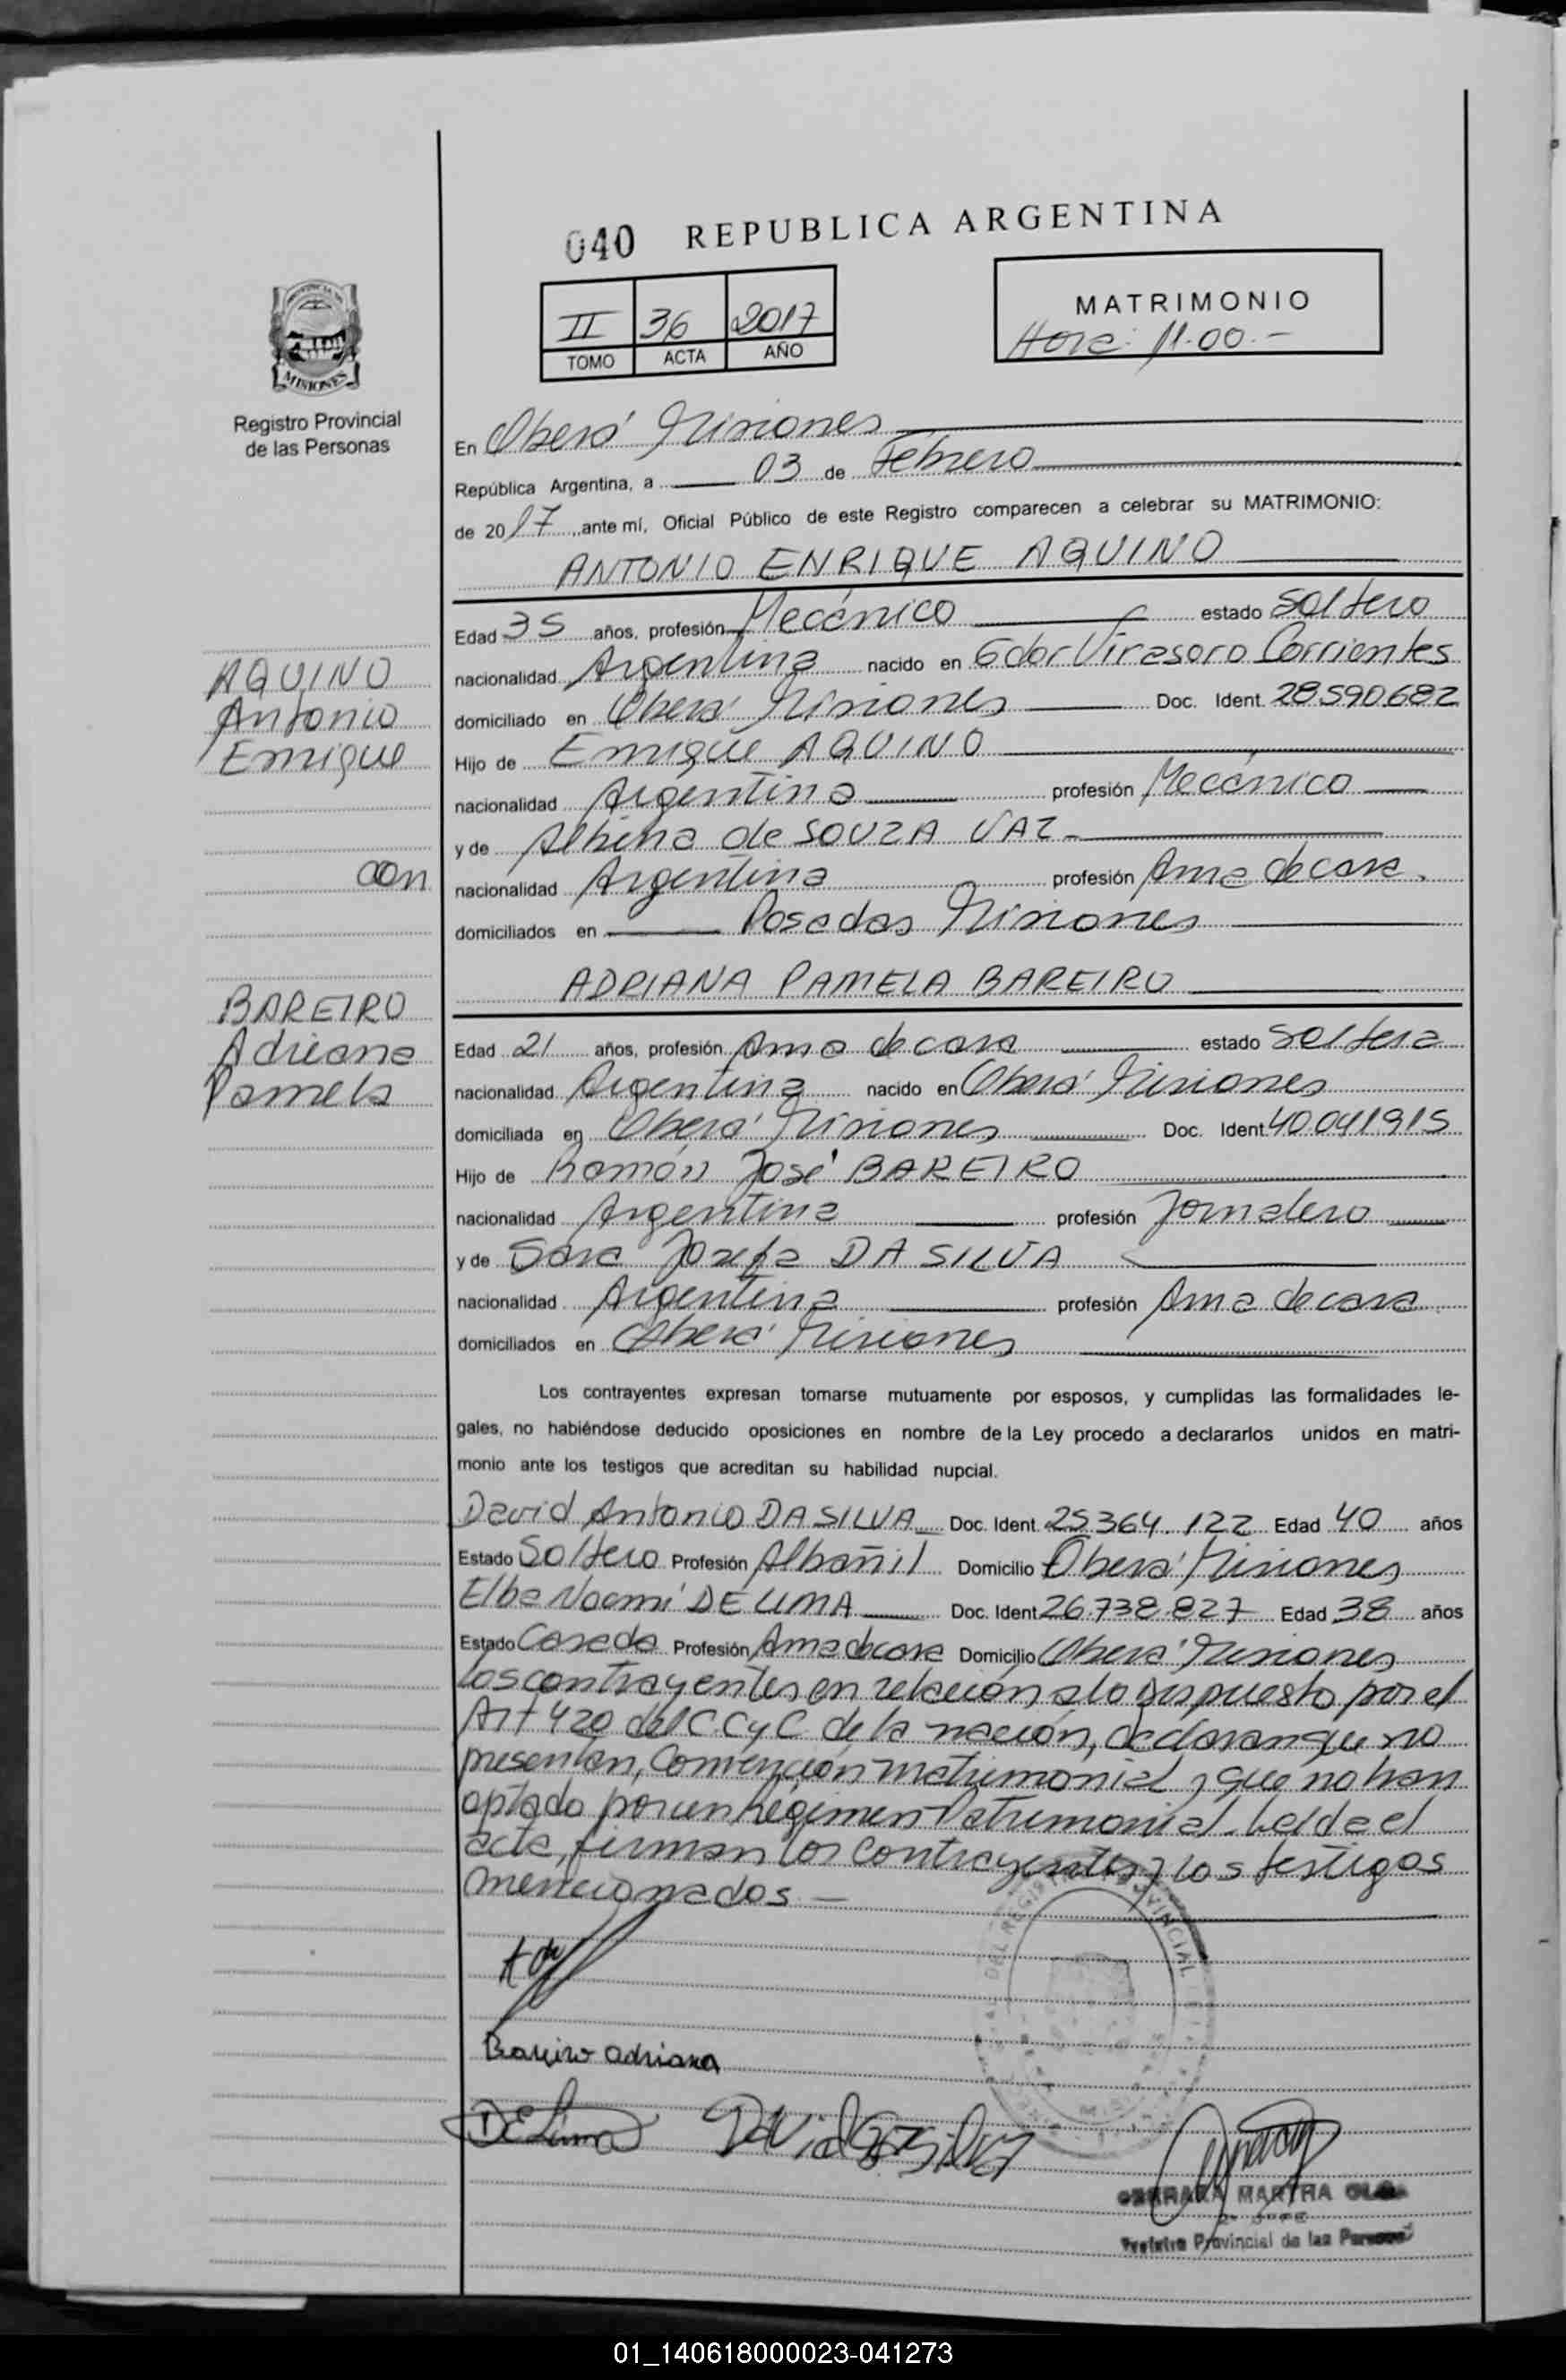 040 REPUBLICA ARGENTINA
II 36 2017
TOMO ACTA AÑO
MATRIMONIO
Hora: 11.00.-
PROVINCIA DE
MISIONES
Registro Provincial
de las Personas
En Oberá Misiones
República Argentina, a 03 de Febrero
de 2017, ante mí, Oficial Público de este Registro comparecen a celebrar su MATRIMONIO:
ANTONIO ENRIQUE AQUINO
Edad 35 años, profesión Mecánico estado Soltero
nacionalidad Argentina nacido en Gdor Virasoro Corrientes
domiciliado en Oberá Misiones Doc. Ident. 28590682
Hijo de Enrique AQUINO
nacionalidad Argentina profesión Mecánico
y de Albina de SOUZA VAZ
nacionalidad Argentina profesión Ama de casa.
domiciliados en Posadas Misiones
AQUINO
Antonio
Enrique
con
BAREIRO
Adriana
Pamela
ADRIANA PAMELA BAREIRO
Edad 21 años, profesión Ama de casa estado Soltera
nacionalidad Argentina nacido en Oberá Misiones
domiciliada en Oberá Misiones Doc. Ident. 40.041.915
Hijo de Ramón José BAREIRO
nacionalidad Argentina profesión Jornalero
y de Sara Josefa DA SILVA
nacionalidad Argentina profesión Ama de casa
domiciliados en Oberá Misiones
Los contrayentes expresan tomarse mutuamente por esposos, y cumplidas las formalidades le-
gales, no habiéndose deducido oposiciones en nombre de la Ley procedo a declararlos unidos en matri-
monio ante los testigos que acreditan su habilidad nupcial.
David Antonio DA SILVA Doc. Ident. 25.364.122 Edad 40 años
Estado Soltero Profesión Albañil Domicilio Oberá Misiones
Elba Noemí DE LIMA Doc. Ident. 26.738.827 Edad 38 años
Estado Casada Profesión Ama de casa Domicilio Oberá Misiones
Los contrayentes en relación a lo dispuesto por el
Art 420 del C.C y C. de la nación, declaran que no
presentan, Convención matrimonial y que no han
optado por un Régimen Patrimonial. Leída el
acta, firman los contrayentes y los testigos
mencionados
Bareiro adriana
DE Lima David Da Silva
MARTHA OLGA
Registro Provincial de las Personas
01_140618000023-041273